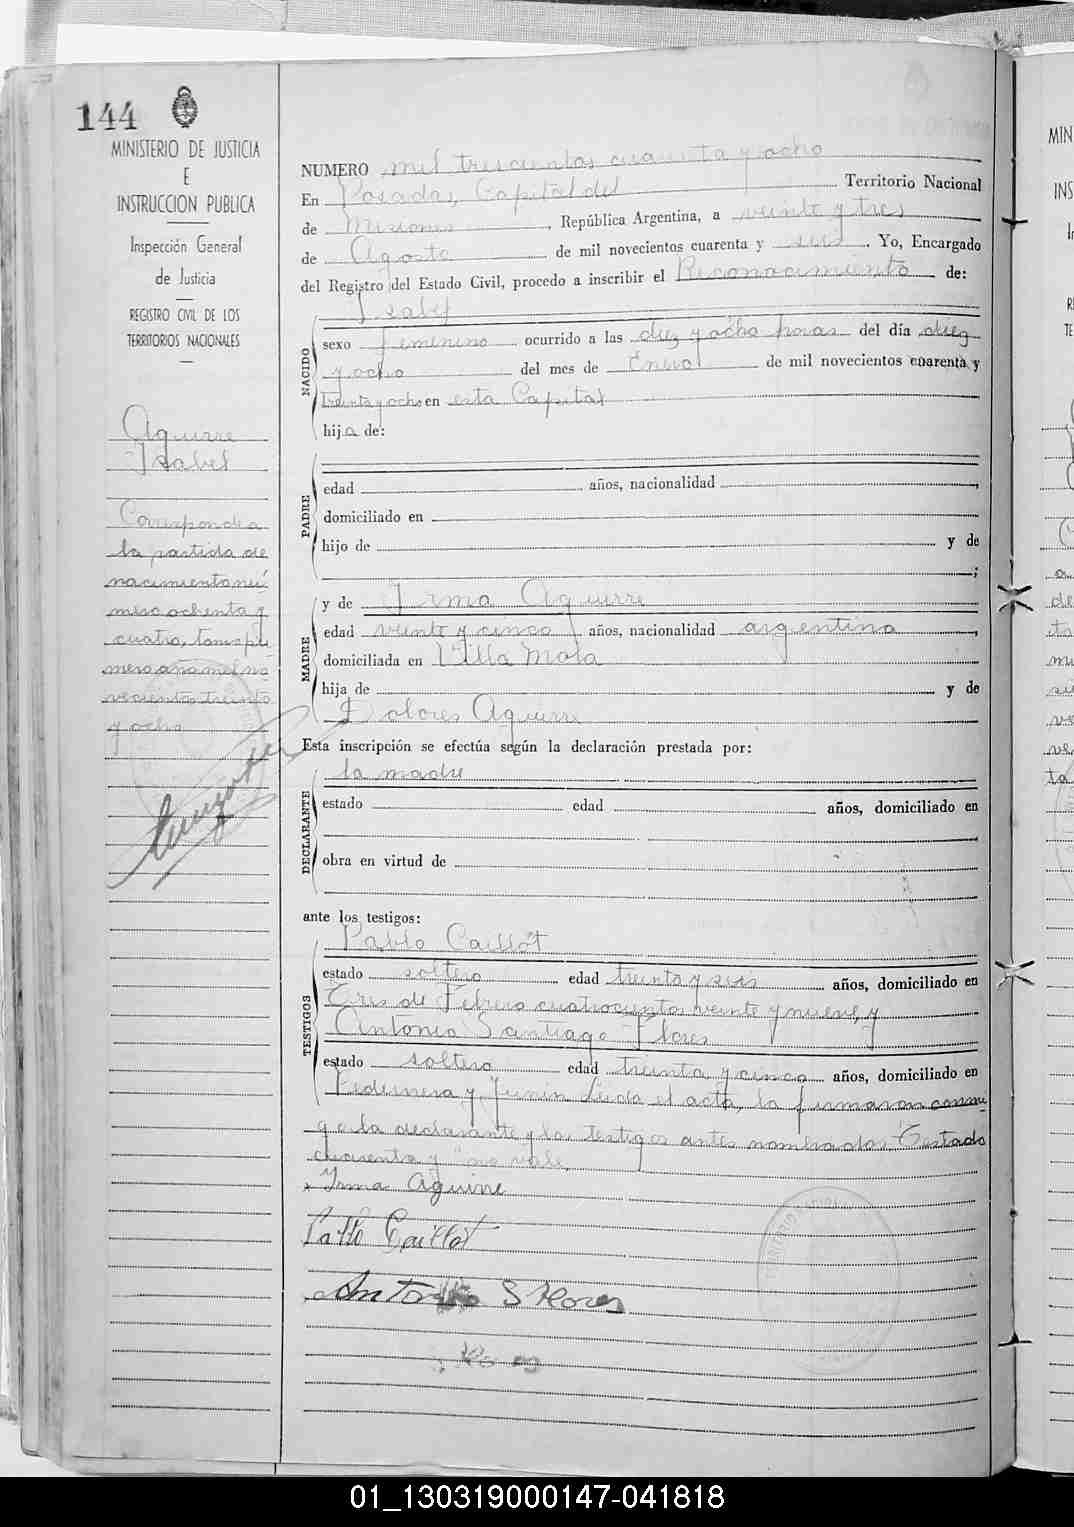 144
MINISTERIO DE JUSTICIA
E
INSTRUCCION PUBLICA
Inspección General
de Justicia
REGISTRO CIVIL DE LOS
TERRITORIOS NACIONALES
Aguirre
Isabel
Corresponde a
la partida de
nacimiento nú
mero ochenta y
cuatro, tomo pri
mero año mil no
vecientos treinta
y ocho
NUMERO mil trescientos cuarenta y ocho
En Posadas, Capital del Territorio Nacional
de Misiones, República Argentina, a veinte y tres
de Agosto de mil novecientos cuarenta y seis. Yo, Encargado
del Registro del Estado Civil, procedo a inscribir el Reconocimiento de:
Isabel
NACIDO
sexo femenino ocurrido a las diez y ocho horas del día diez
y ocho del mes de Enero de mil novecientos cuarenta y
treinta y ocho en esta Capital
hija de:
PADRE
edad años, nacionalidad
domiciliado en
hijo de y de
;
MADRE
y de Irma Aguirre
edad veinte y cinco años, nacionalidad argentina
domiciliada en Villa Mola
hija de y de
Dolores Aguirre
Esta inscripción se efectúa según la declaración prestada por:
la madre
DECLARANTE
estado edad años, domiciliado en
obra en virtud de
ante los testigos:
Pablo Caillot
TESTIGOS
estado soltero edad treinta y seis años, domiciliado en
Tres de Febrero cuatrocientos veinte y nueve, y
Antonio Santiago Flores
estado soltero edad treinta y cinco años, domiciliado en
Pedernera y Junin Leida el acta, la firmaron conmi
go la declarante y los testigos antes nombrados. Testado
cuarenta y "no vale.
Irma Aguirre
Pablo Caillot
Antonio S Flores
01_130319000147-041818